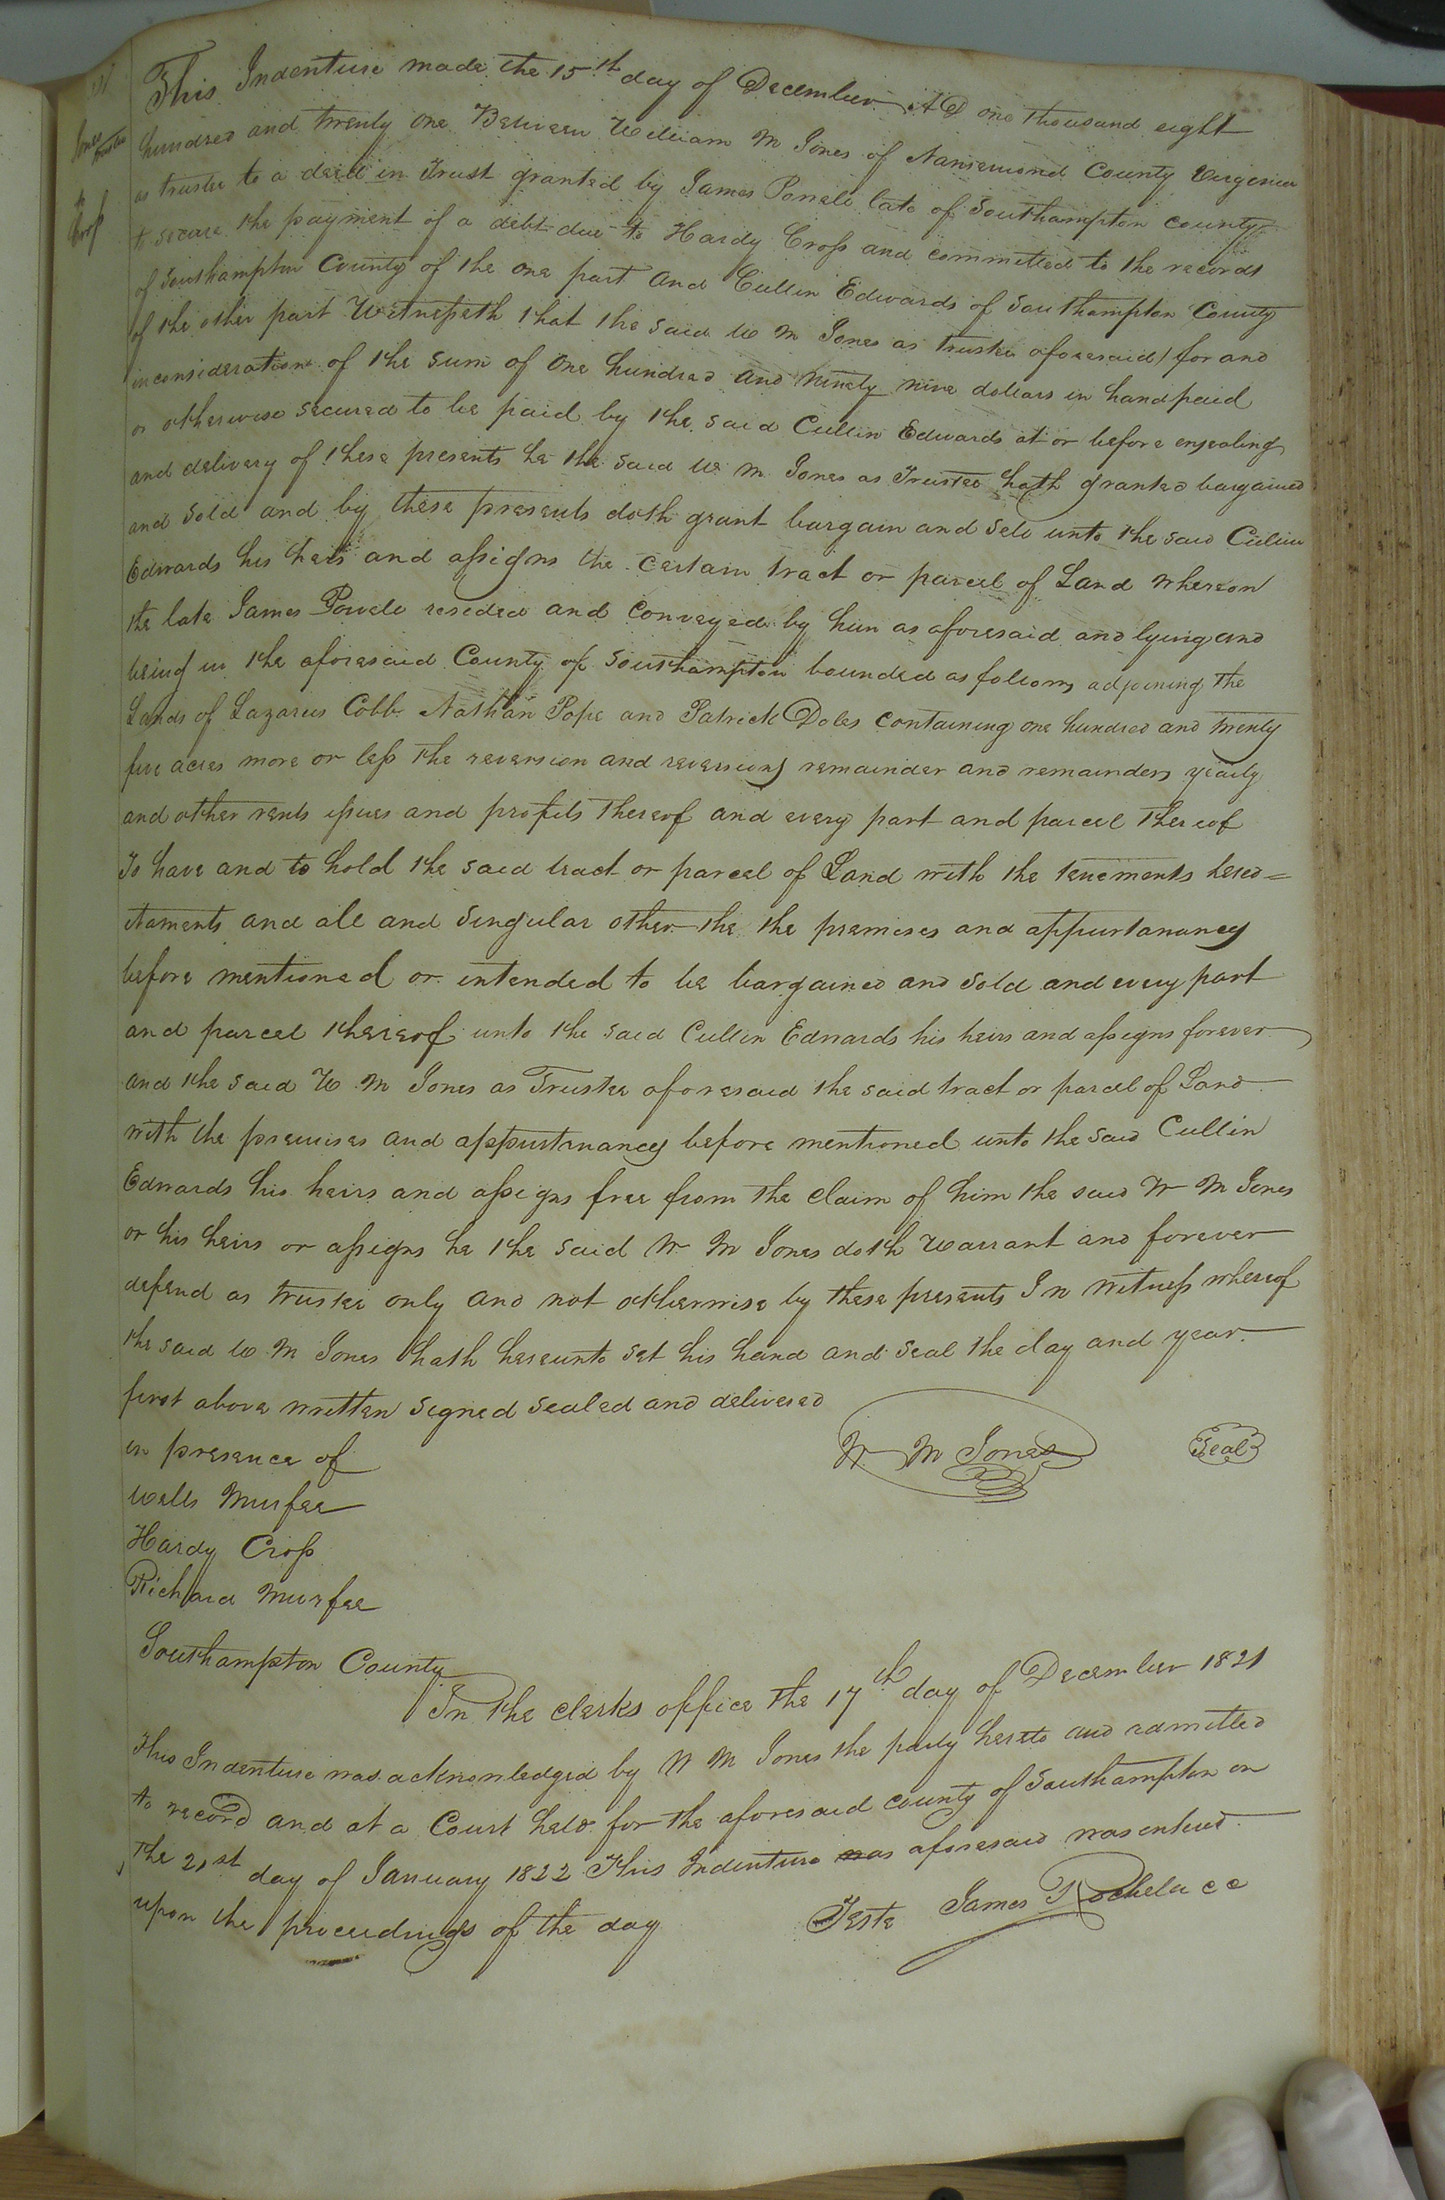 Jones
trustee
to
Cross
This Indenture made the 15th day of December AD one thousand eight
hundred and twenty one Between William M Jones of Nansemond County Virginia
as trustee to a deed in Trust granted by James Powell late of Southampton county
to secure the payment of a debt due to Hardy Cross and committed to the records
of Southampton County of the one part And Cullin Edwards of Southampton County
of the other part Witnesseth that the said W M Jones as trustee aforesaid for and
in consideration of the sum of One hundred and ninety nine dollars in hand paid
or otherwise secured to be paid by the said Cullin Edwards at or before ensealing
and delivery of these presents he the said W M Jones as Trustee hath granted bargained
and sold and by these presents doth grant bargain and sell unto the said Cullin
Edwards his heirs and assigns the certain tract or parcel of Land whereon
the late James Powell reseded and conveyed by him as aforesaid and lying and
being in the aforesaid County of Southampton bounded as follows adjoining the
Lands of Lazarus Cobb Nathan Pope and Patrick Doles containing one hundred and twenty
five acres more or less the reversion and reversions remainder and remainders yearly
and other rents issues and profits thereof and every part and parcel thereof
To have and to hold the said tract or parcel of Land with the tenements hered=
itaments and all and Singular other the the premises and appurtanancy
before mentioned or intended to be bargained and sold and every part
and parcel thereof unto the said Cullin Edwards his heirs and assigns forever
and the said W M Jones as Trustee aforesaid the said tract or parcel of Land
with the premises and appurtenancy before mentioned unto the said Cullin
Edwards his heirs and assigns free from the claim of him the said W M Jones
or his heirs or assigns he the said W M Jones doth Warrant and forever
defend as trustee only and not otherwise by these presents In witness whereof
the said W M Jones hath hereunto set his hand and seal the day and year
first above written Signed Sealed and delivered
in presence of
W M Jones Seal
Wells Murfee
Hardy Cross
Richard Murfee
Southampton County
In the clerks office the 17th day of December 1821
This Indenture was acknowledged by W M Jones the party hereto and admitted
to record and at a Court held for the aforesaid county of Southampton on
the 21st day of January 1822 This Indenture was aforesaid was entered
upon the proceedings of the day
Teste James Rochelle cc